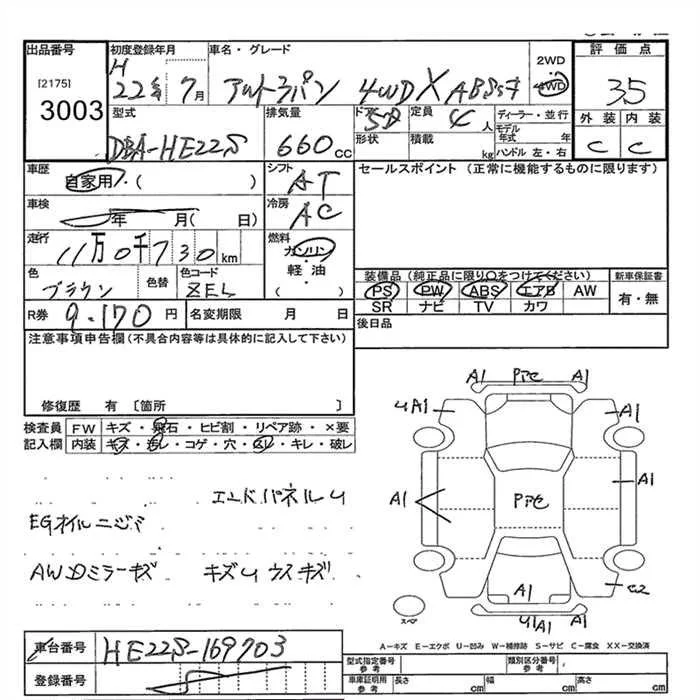 出品番号 初度登録年月 車名・グレード 2WD 4WD 評価点
[2175] H
3003 22年 7月 アルトラパン 4WD X ABSｷ 3.5
型式 排気量 ドア 5D 定員 4人 ディーラー・並行 外装 内装
DBA-HE22S 660cc 形状 積載 kg モデル年式 年 C C
ハンドル 左・右
車歴 シフト セールスポイント (正常に機能するものに限ります)
自家用・( ) AT
車検 年 月( 日) 冷房 AC
走行 11万0千730km 燃料 ガソリン・軽油 ( )
色 ブラウン 色替 色コード ZEL
装備品 (純正品に限り○をつけてください) 新車保証書
PS PW ABS エアB AW 有・無
SR ナビ TV カワ
R券 9.170円 名変期限 月 日 後日品
注意事項申告欄(不具合内容等は具体的に記入して下さい)
修復歴 有 〔箇所 〕
検査員 FW キズ・飛石・ヒビ割・リペア跡・×要
記入欄 内装 キズ・汚レ・コゲ・穴・スレ・キレ・破レ
エンドパネルU
EGオイルニジミ
AWDミラーキズ キズU ウスキズ
A1 Pアセ A1
UA1 A1
A1 Pアセ A1
A1 C2
スペア U1A1 A1
A-キズ E-エクボ U-凹み W-補修跡 S-サビ C-腐食 XX-交換済
車台番号 HE22S-169703
登録番号
型式指定番号 参考 類別区分番号 参考
車庫証明用 参考 長さ cm 幅 cm 高さ cm